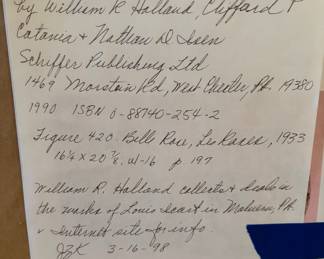 by William R Holland, Clifford P
Catania & Nathan D. Isen
Schiffer Publishing Ltd
1469 Morstein Rd, West Chester, PA. 19380
1990 ISBN 0-88740-254-2
Figure 420. Belle Rose, Les Roses, 1933
16¼ x 20⅞, w/-16 p. 197
William R. Holland collects & deals in
the works of Louis Icart in Malvern, PA.
& Internet site for info.
JZK 3-16-98